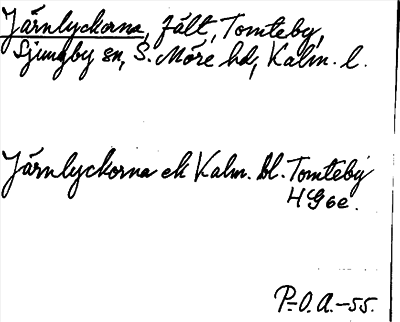 Järnlyckorna, fält, Tomteby,
Ljungby sn, S. Möre hd, Kalm. l.
Järnlyckorna ek Kalm. bl. Tomteby
4G6e.
P-O.A.-55.